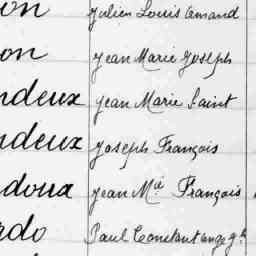 on Julien Louis Amand
on Jean Marie Joseph
ndeux Jean Marie Saint
ndeux Joseph François
doux Jean Mie François
rdo Paul Constant ange